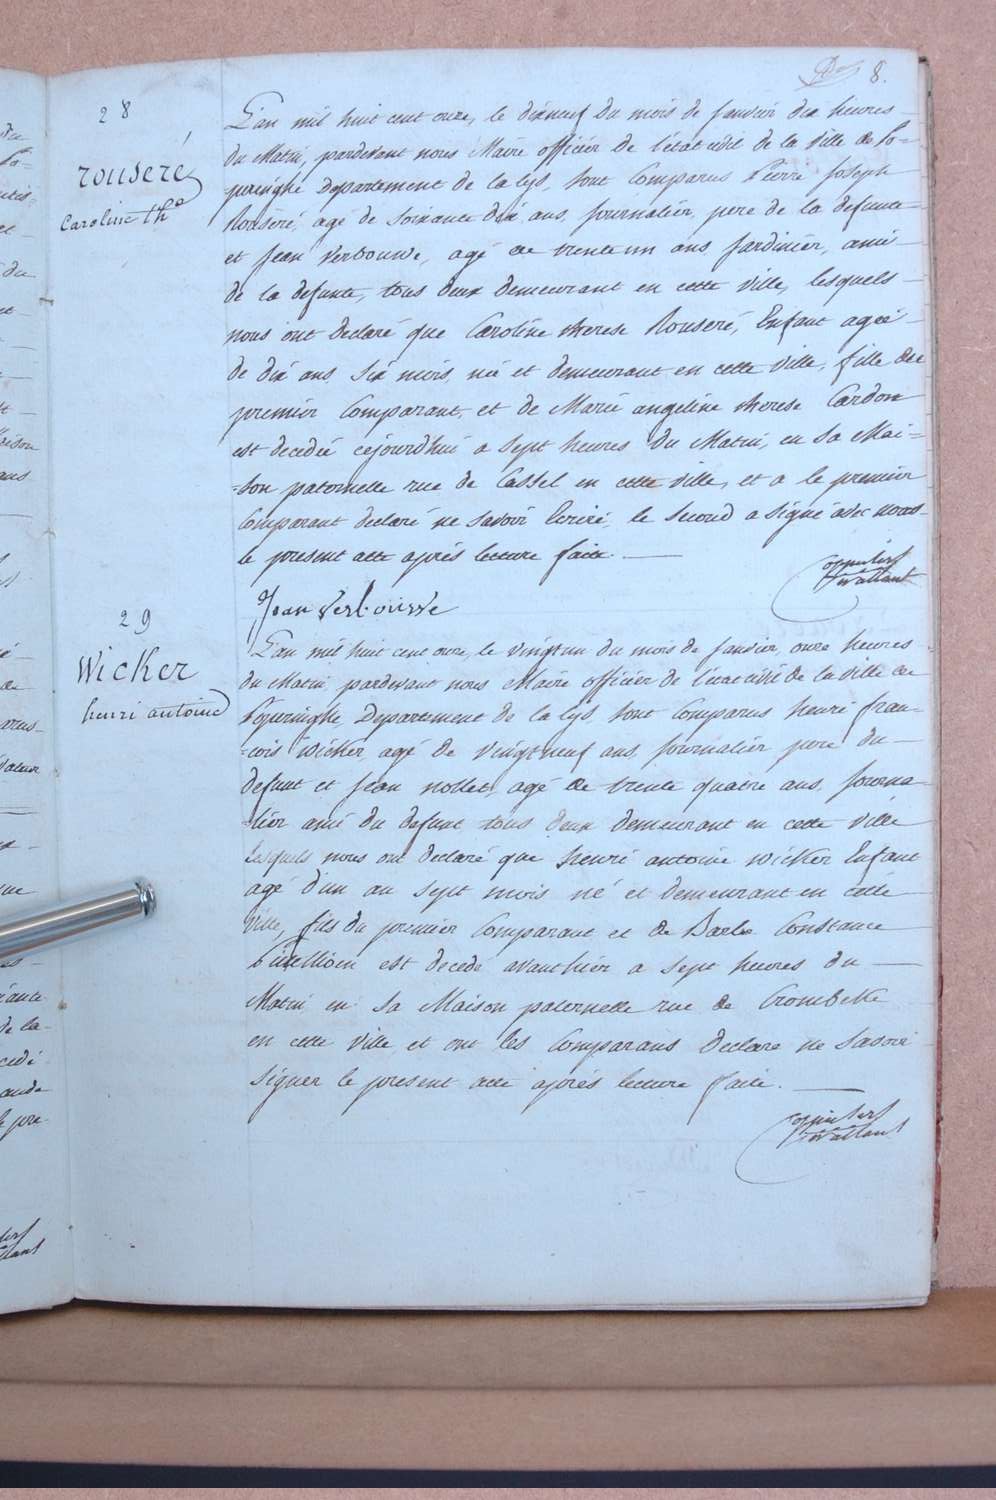 8.
28
rouseré
Caroline thse
L'an mil huit cent onze, le dixneuf du mois de Janvier dix heures
du Matin, pardevant nous Maire officier de l'état civil de la ville de Po=
peringhe Departement de la lys, sont Comparus Pierre Joseph
Rouseré, agé de soixante dix ans, Journalier, pere de la defunte
et Jean Verbouwe, agé de trente un ans Jardinier, ami
de la defunte, tous deux demeurant en cette ville, lesquels
nous ont declaré que Caroline therese Rouseré, Enfant agée
de dix ans, six mois, née et demeurant en cette ville, fille du
premier Comparant, et de Marie angeline therese Cardon
est decedée cejourd'hui a sept heures du Matin, en sa Mai=
=son paternelle rue de Cassel en cette ville, et a le premier
Comparant declaré ne savoir Ecrire, le second a signé avec nous
le present acte après lecture faite.
Jean
29
Wicker
henri antoine
L'an mil huit cent onze, le vingtun du mois de Janvier, onze heures
du Matin, pardevant nous Maire officier de l'état civil de la ville de
Poperinghe Departement de la lys, sont Comparus henri fran=
=cois Wicker, agé de vingtneuf ans, Journalier pere du
defunt et Jean nollet, agé de trente quatre ans, Journa=
=lier ami du defunt tous deux demeurant en cette ville
lesquels nous ont declaré que henri antoine wicker Enfant
agé d'un an sept mois né et demeurant en cette
ville, fils du premier Comparant et de Barbe Constance
est decedé avanthier a sept heures du
Matin en sa Maison paternelle rue de Crombeke
en cette ville et ont les Comparans declaré ne savoir
signer le present acte après lecture faite.